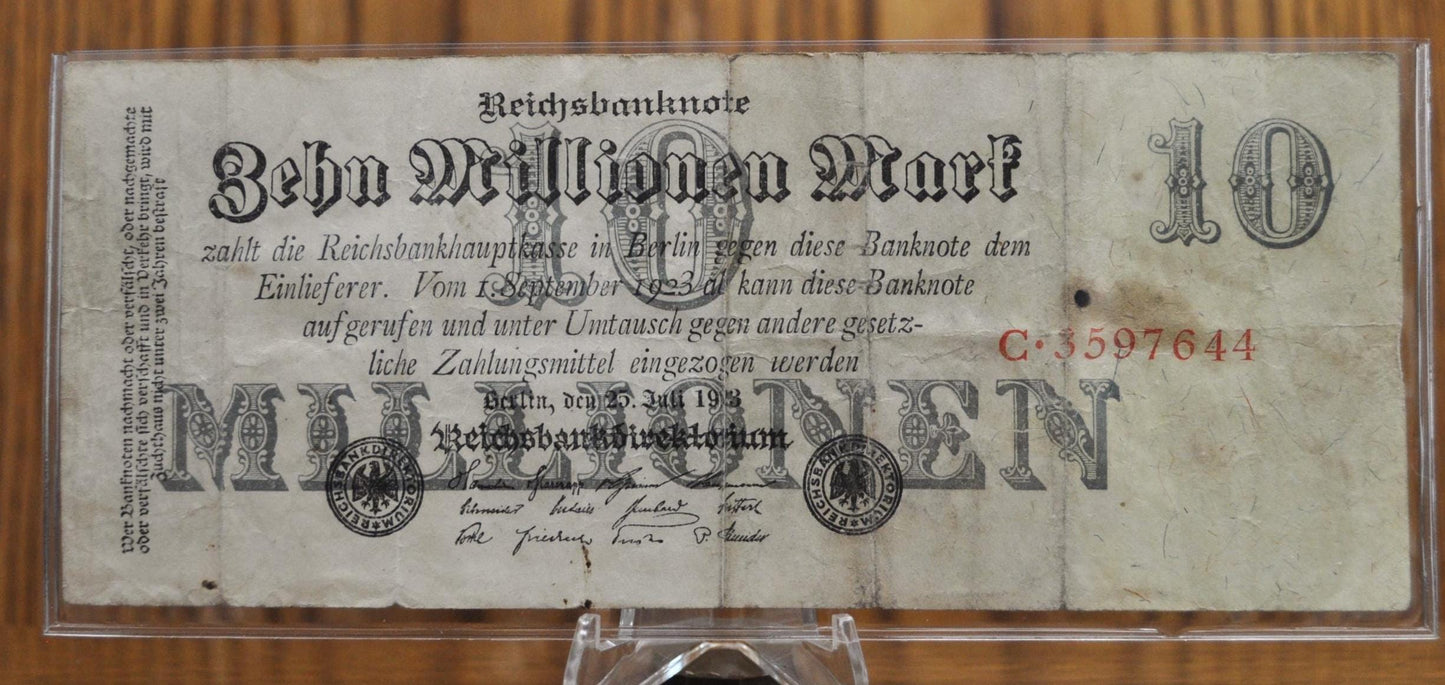 Reichsbanknote
Zehn Millionen Mark
10
10
zahlt die Reichsbankhauptkasse in Berlin gegen diese Banknote dem
Einlieferer. Vom 1. September 1923 ab kann diese Banknote
aufgerufen und unter Umtausch gegen andere gesetz-
liche Zahlungsmittel eingezogen werden
C·3597644
MILLIONEN
Berlin, den 25. Juli 1923
Reichsbankdirektorium
REICHSBANKDIREKTORIUM
REICHSBANKDIREKTORIUM
Schneider Budczies
Vocke Friedrich Fuchs P. Schneider
Wer Banknoten nachmacht oder verfälscht, oder nachgemachte
oder verfälschte sich verschafft und in Verkehr bringt, wird mit
Zuchthaus nicht unter zwei Jahren bestraft